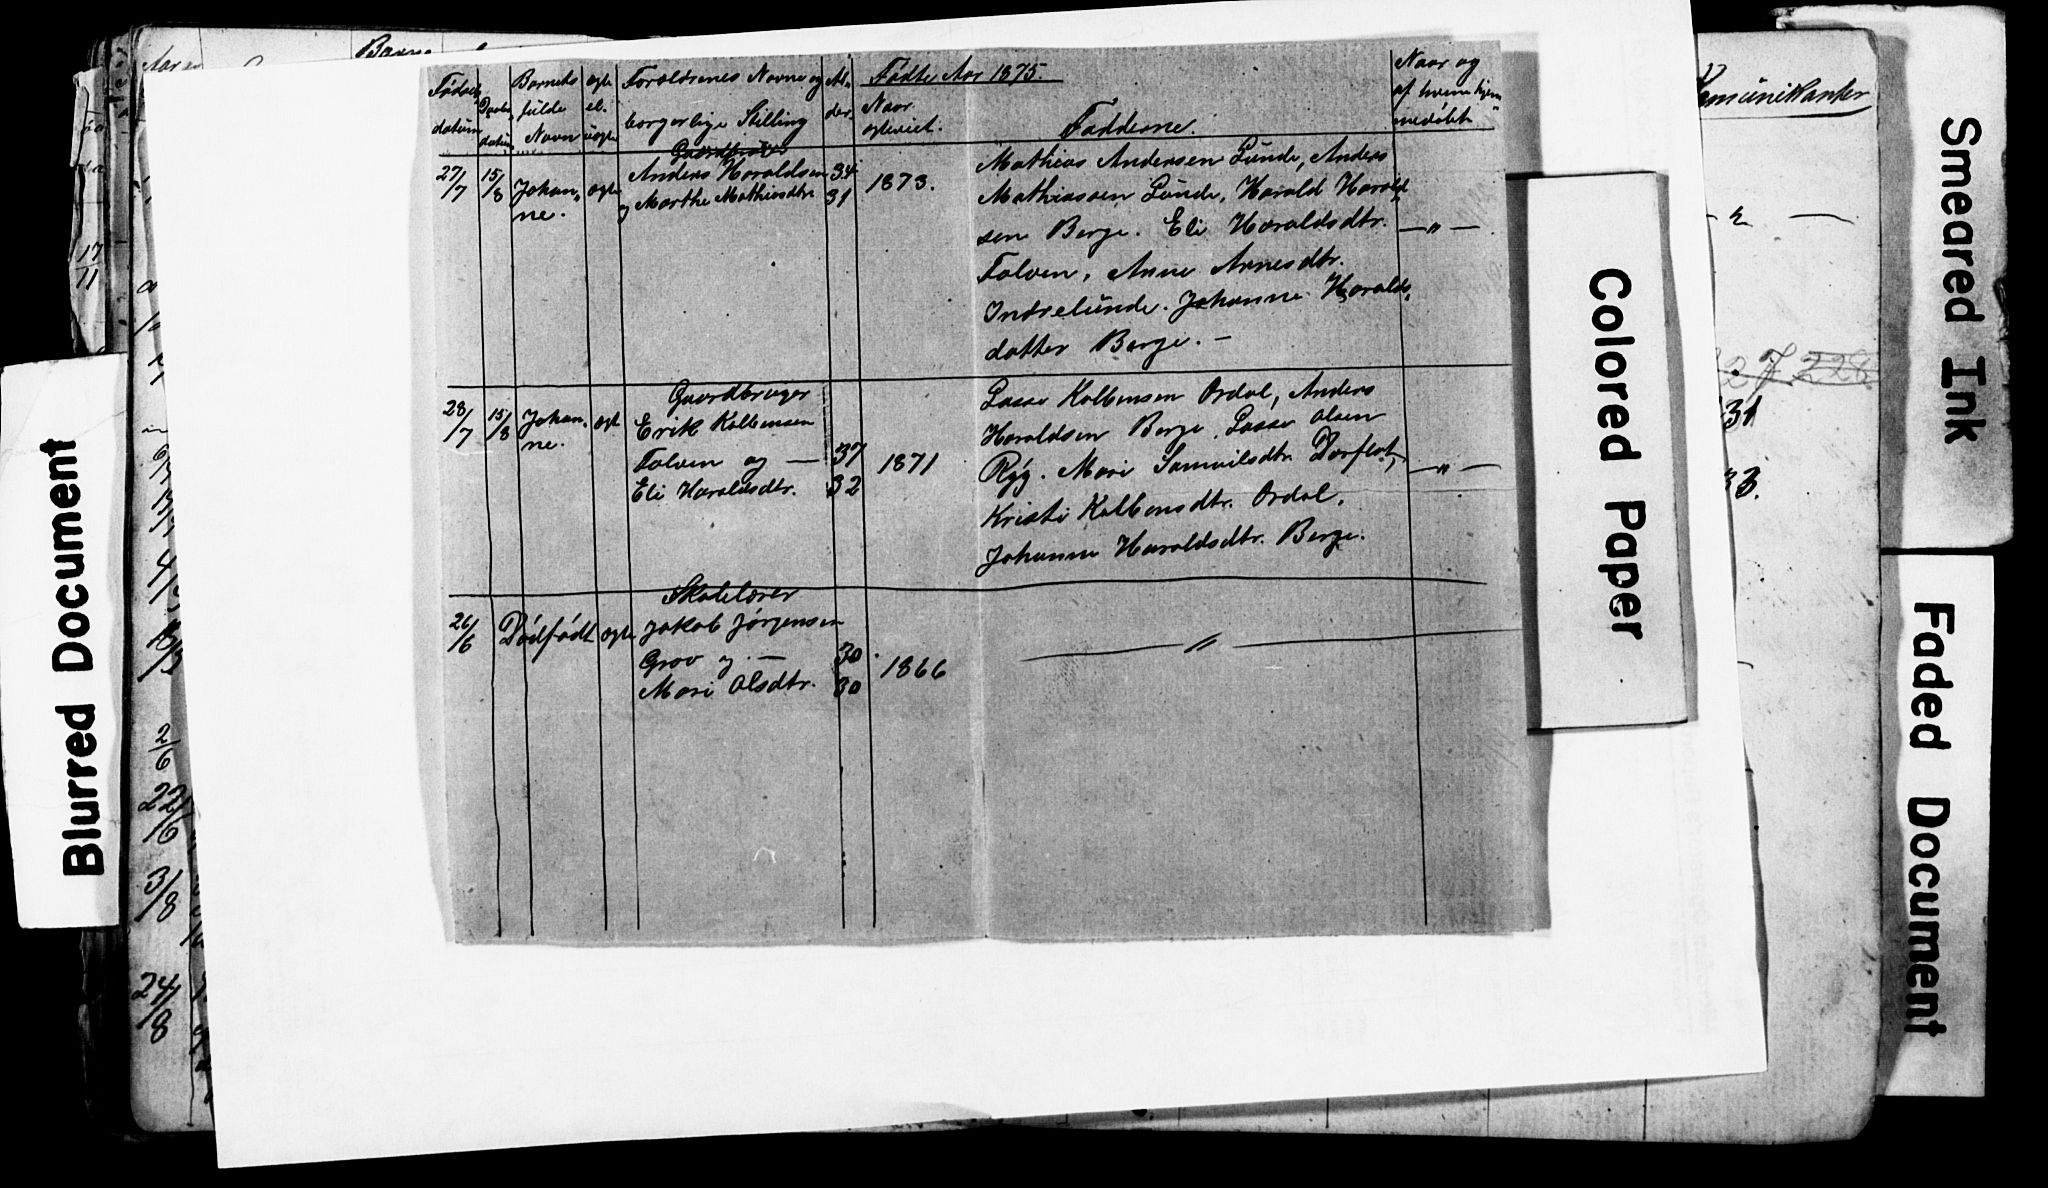 Fødte Aar 1875.
Fødsels datum
Daabs datum
Barnets fulde Navn
ægte el. uægte
Forældrenes Navne og borgerlige Stilling
Al- der.
Naar ægteviet.
Fadderne.
Naar og af hvem hjem- medøbt
27/7 15/8 Johan- ne. ægte
Gaardbruger
Anders Haraldsen 34
og Marthe Mathiasdtr. 31
1873.
Mathias Andersen Lunde, Anders
Mathiassen Lunde, Harald Harald-
sen Berge. Eli Haraldsdtr.
Falven, Anne Arnesdtr.
Indrelunde. Johanne Haralds-
datter Berge. —
— " —
28/7 15/8 Johan- ne. ægt
Gaardbruger
Erik Kolbensen
Falven og — 37
Eli Haraldsdtr. 32
1871
Lasse Kolbensen Ordal, Anders
Haraldsen Berge, Lasse Olsen
Ryg. Mari Samuilsdtr.
Kristi Kolbensdtr. Ordal,
Johanne Haraldsdtr. Berge.
— " —
26/6 Dødfødt ægte
Skolelærer
Jakob Jørgensen
Grov og — 30.
Mari Olsdtr. 30
1866
— " —
Blurred Document
Colored Paper
Smeared Ink
Faded Document
17/11
6/2
22/6
3/8
24/8
227 228
31
33.